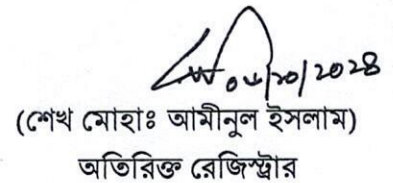 ০৮/১০/২০২৪
(শেখ মোহাঃ আমীনুল ইসলাম)
অতিরিক্ত রেজিস্ট্রার